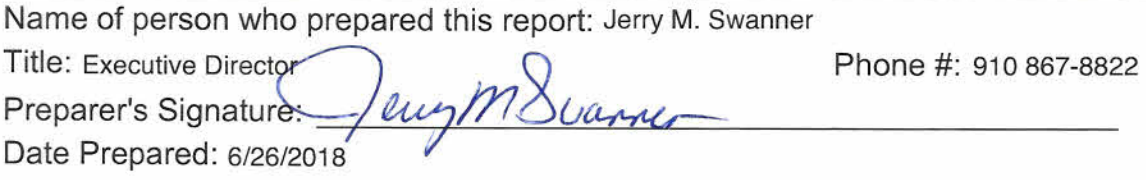 Name of person who prepared this report: Jerry M. Swanner
Title: Executive Director Phone #: 910 867-8822
Preparer's Signature: Jerry M Swanner
Date Prepared: 6/26/2018